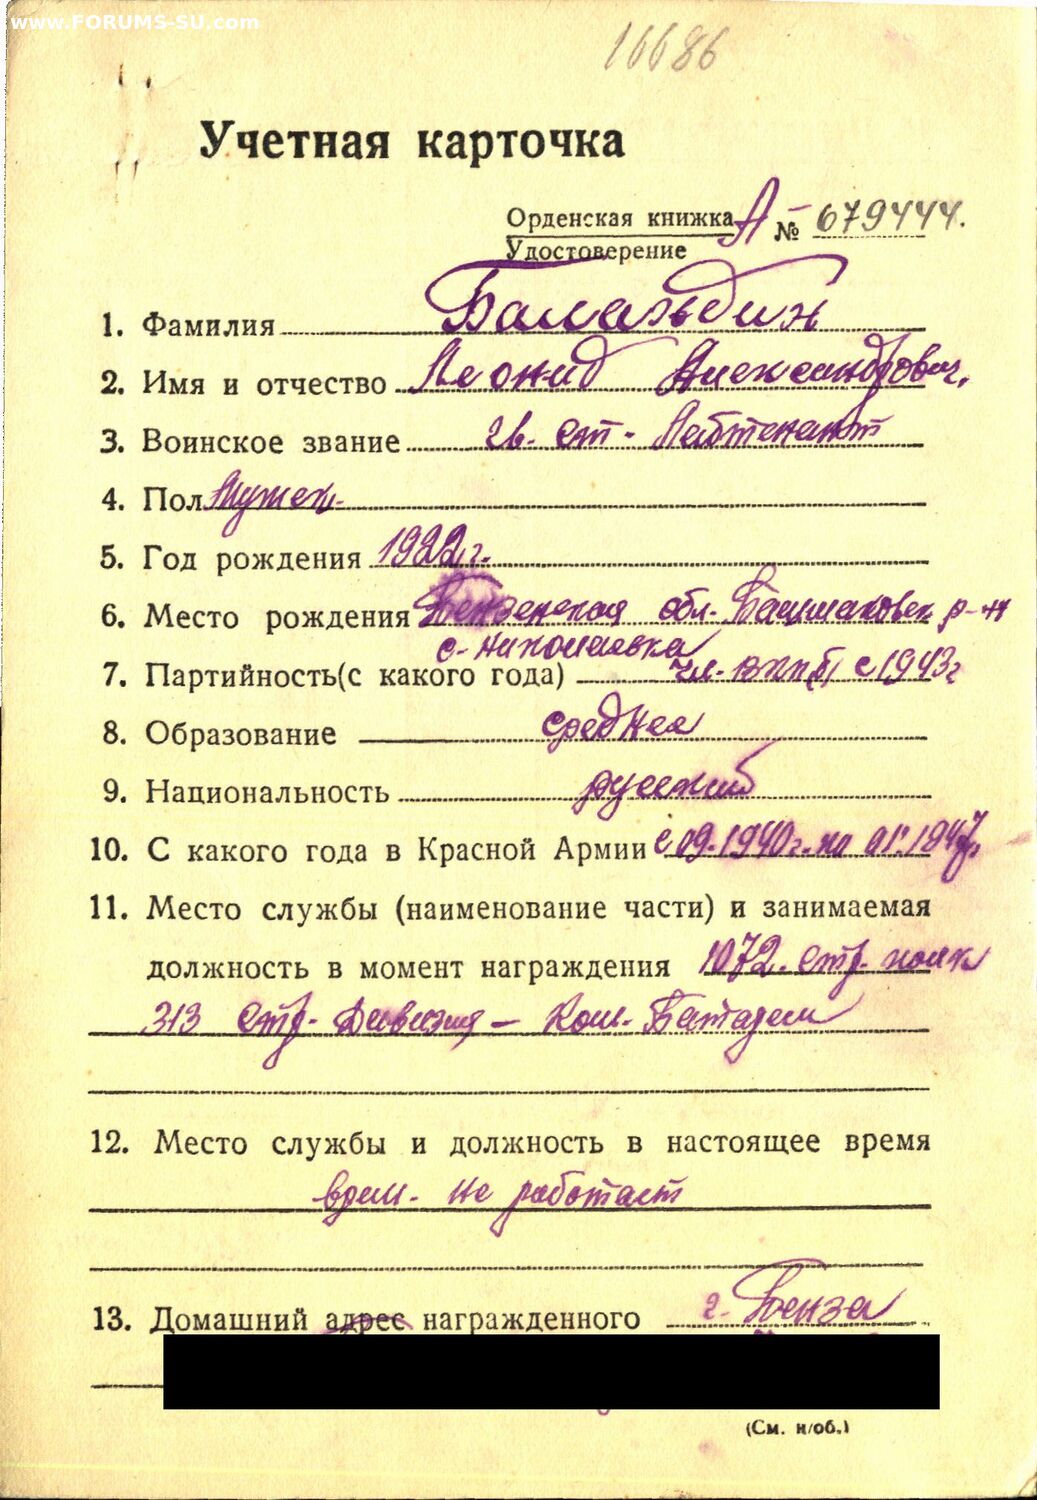 www.FORUMS-SU.com
16686
Учетная карточка
Орденская книжка А № 679444.
Удостоверение
1. Фамилия Бамажбин
2. Имя и отчество Леонид Александрович.
3. Воинское звание гв. ст. Лейтенант
4. Пол Мужск.
5. Год рождения 1922 г.
6. Место рождения Пензенская обл. Башмаковск р-н
с. Николаевка
7. Партийность(с какого года) чл. ВКП(б) с 1943 г
8. Образование среднее
9. Национальность русский
10. С какого года в Красной Армии с 09.1940 г. по 01.1947
11. Место службы (наименование части) и занимаемая
должность в момент награждения 1072. стр. полк
313 стр. Дивизия – Ком. Батареи
12. Место службы и должность в настоящее время
врем. не работает
13. Домашний адрес награжденного г. Пенза
(См. н/об.)